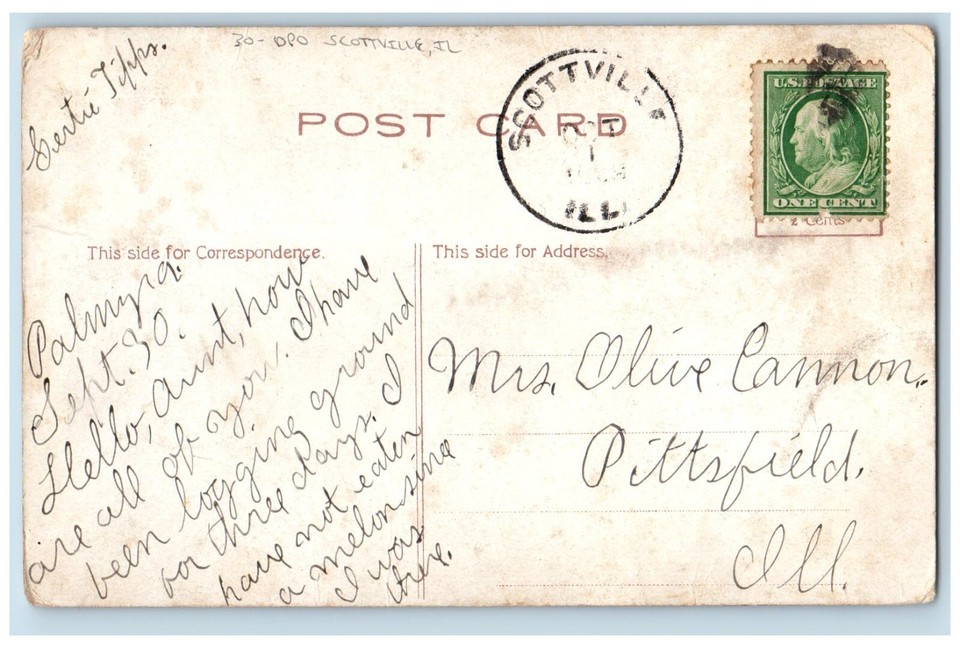 30- DPO SCOTTVILLE, IL
Gertie Tipps.
POST CARD
SCOTTVILLE
OCT
1
ILL.
U.S. POSTAGE
ONE CENT
2 Cents
This side for Correspondence.
This side for Address.
Palmyra.
Sept. 30.
Hello, Aunt, how
are all of you. I have
been logging ground
for three days. I
have not eaten
a melon sine
I was
there.
Mrs. Olive Cannon.
Pittsfield.
Ill.